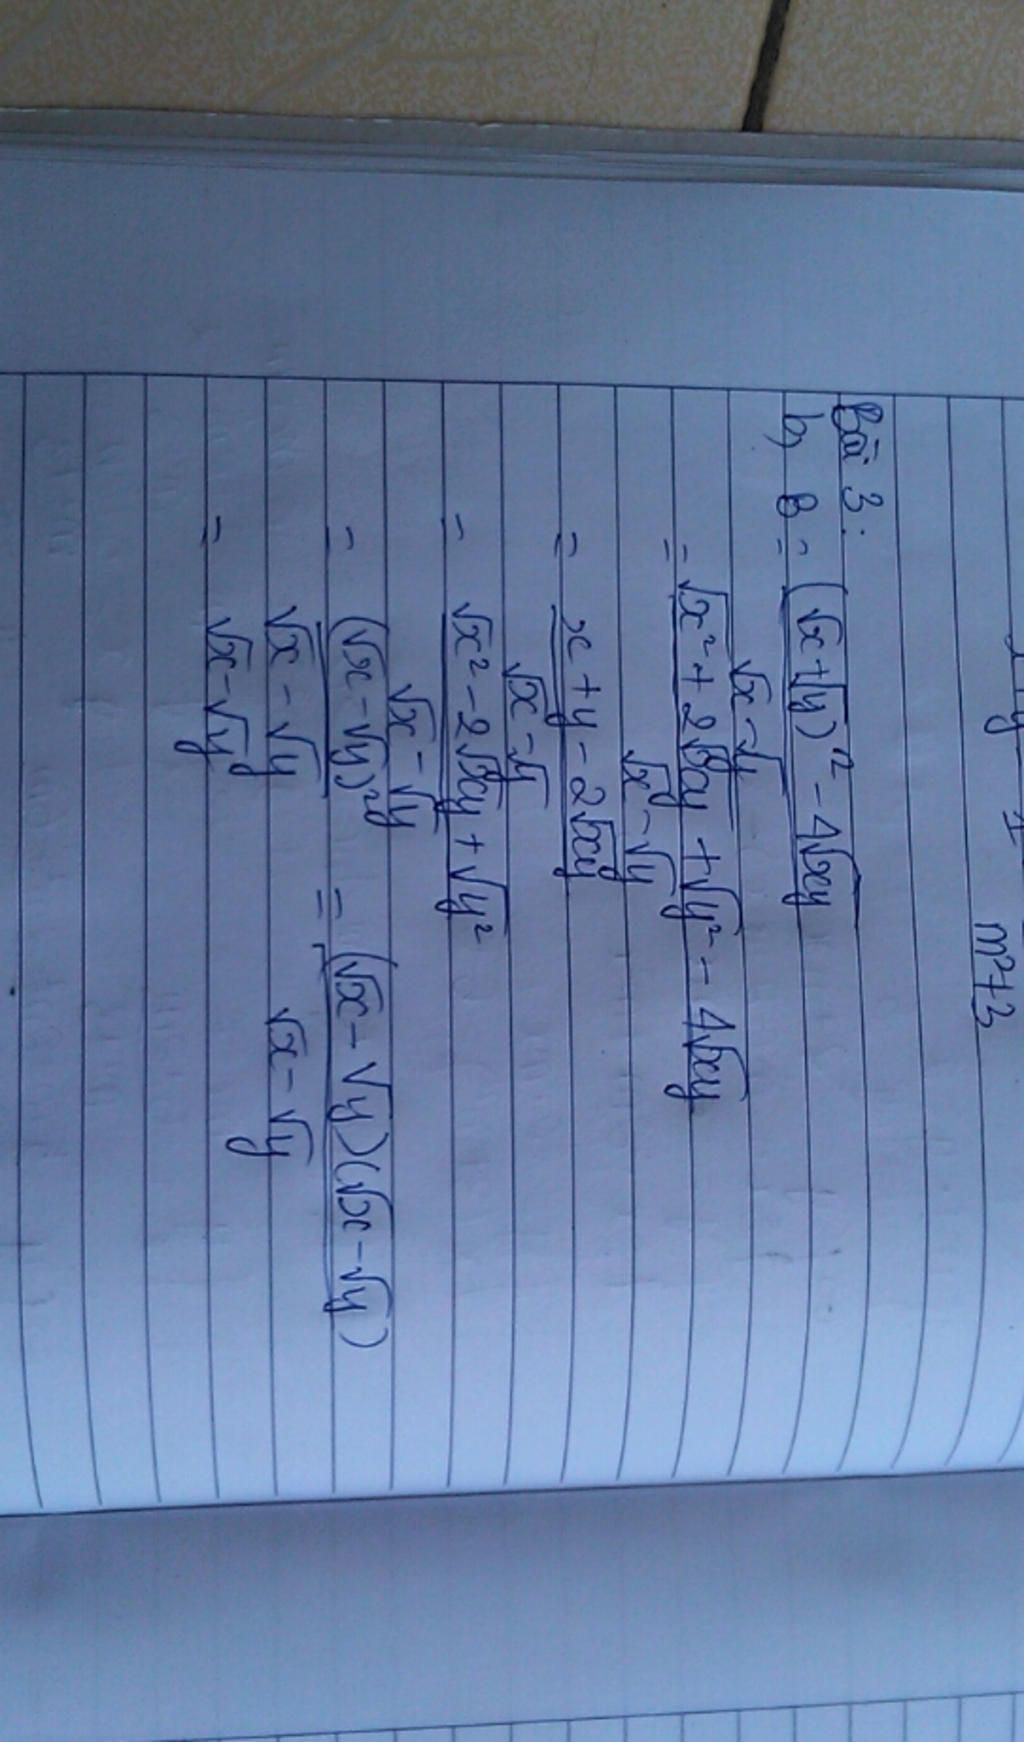 m²+3
Bài 3:
b, B = (√x+√y)² - 4√xy
√x - √y
= √x² + 2√xy + √y² - 4√xy
√x - √y
= x + y - 2√xy
√x - √y
= √x² - 2√xy + √y²
√x - √y
= (√x - √y)² = (√x - √y)(√x - √y)
√x - √y √x - √y
= √x - √y